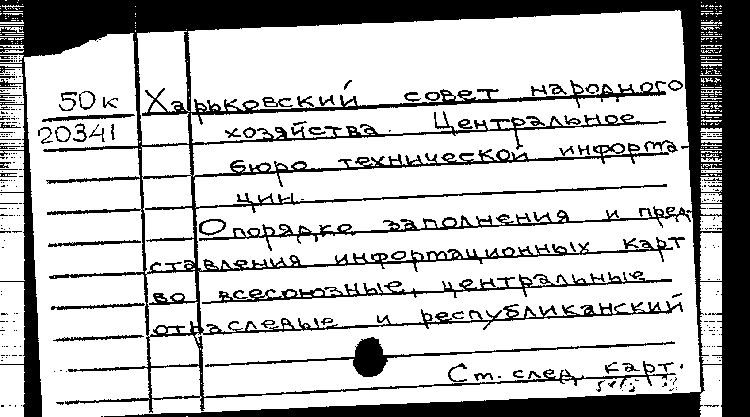 50к Харьковский совет народного
20341 хозяйства. Центральное
бюро технической информа-
ции.
О порядке заполнения и пред-
ставления информационных карт
во всесоюзные, центральные
отраслевые и республиканский
См. след. карт.